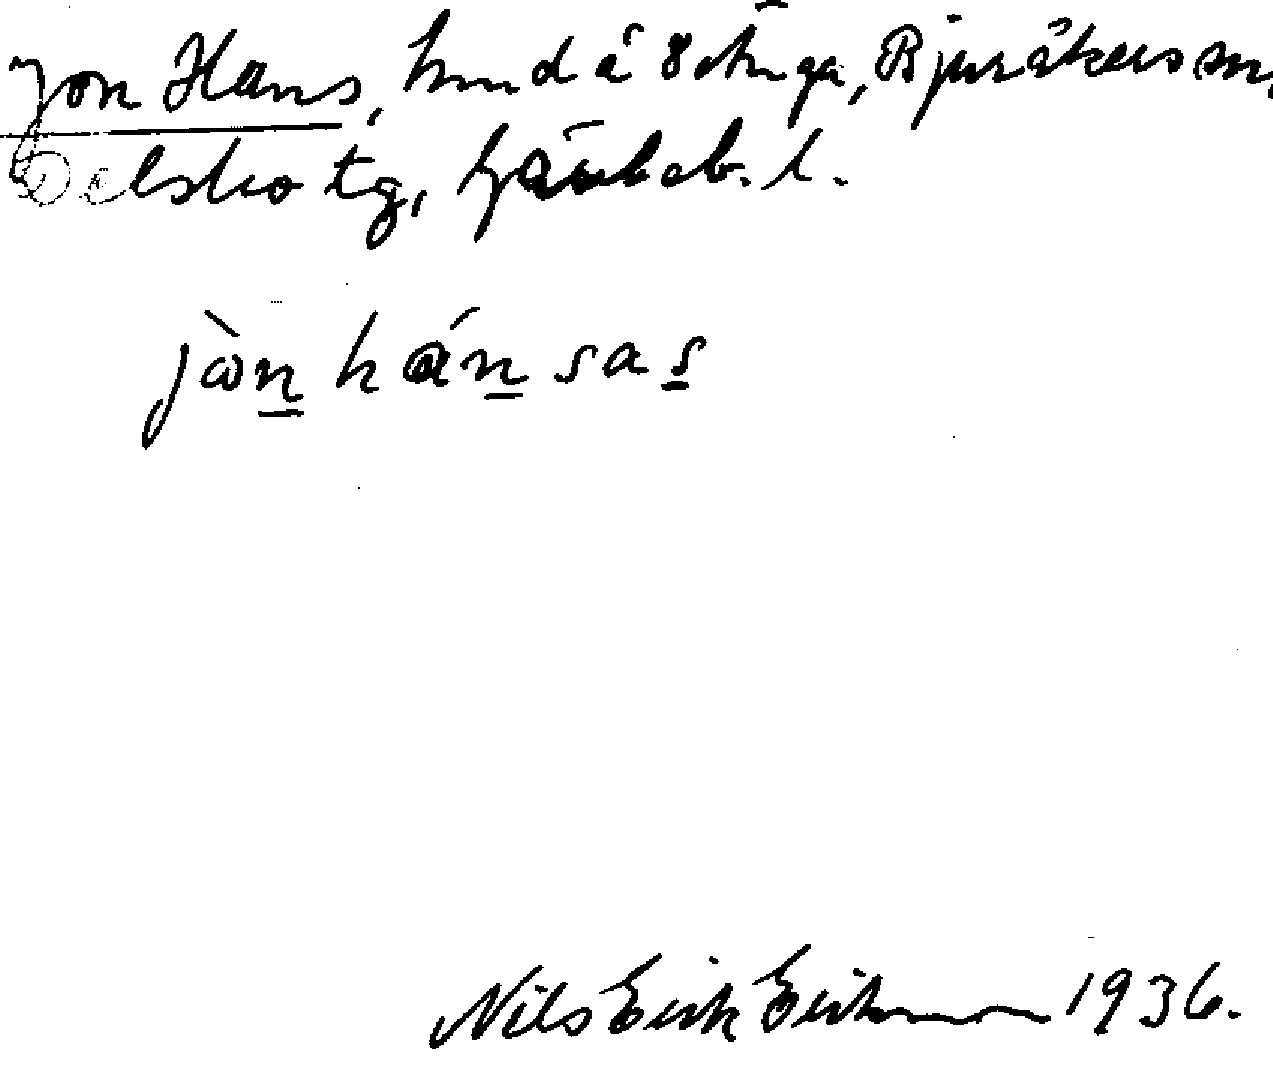 Jon Hans, hmd å 8 Änga, Bjuråkers sn,
Delsbo tg, Gävleb. l.
jòn hán sas
Nils Erik Eriksson 1936.